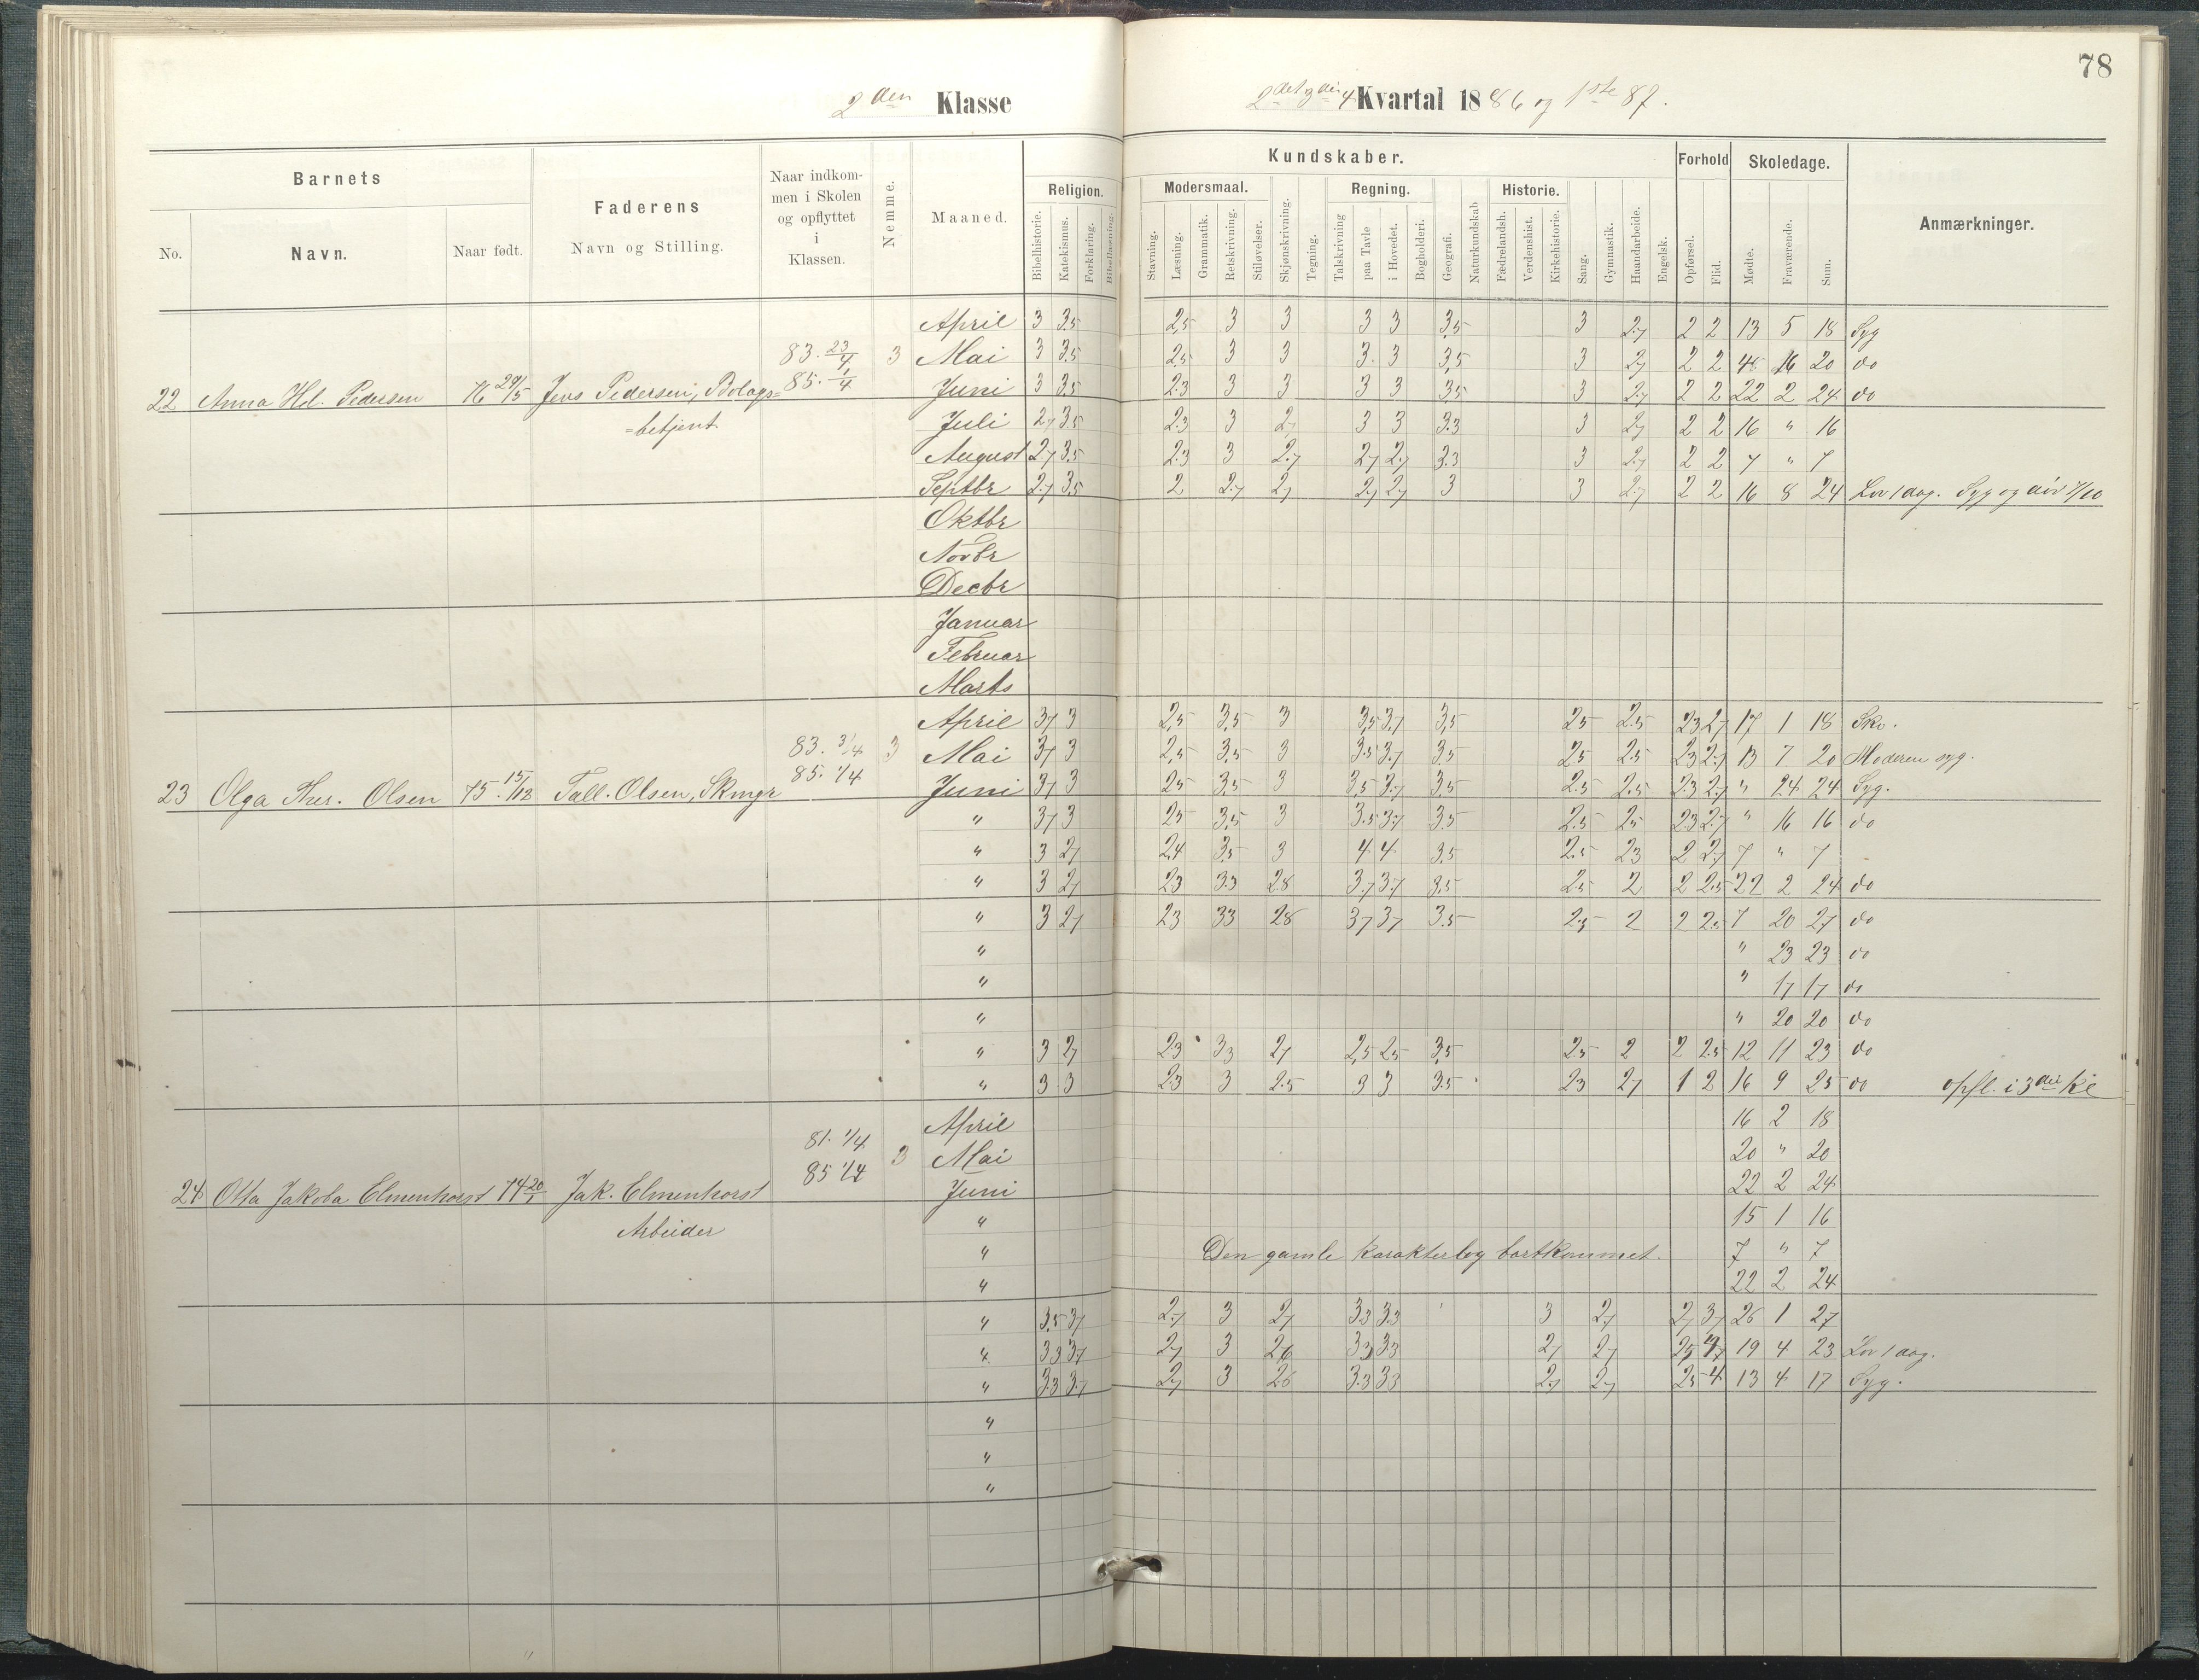 78
2den Klasse
2det 3die 4 Kvartal 1886 og 1ste 87.
Barnets
Faderens
Naar indkommen i Skolen og opflyttet i Klassen.
Nemme.
Maaned.
Kundskaber.
Forhold
Skoledage.
Anmærkninger.
No.
Navn.
Naar født.
Navn og Stilling.
Religion.
Modersmaal.
Regning.
Historie.
Bibelhistorie. Katekismus. Forklaring. Bibellæsning. Stavning. Læsning. Grammatik. Retskrivning. Stiløvelser. Skjønskrivning. Tegning. Talskrivning paa Tavle i Hovedet. Bogholderi. Geografi. Naturkundskab Fædrelandsh. Verdenshist. Kirkehistorie. Sang. Gymnastik. Haandarbeide. Engelsk. Opførsel. Flid. Mødte. Fraværende. Sum.
April 3 3.5 2,5 3 3 3 3 3,5 3 2.7 2 2 13 5 18 Syg
83. 23/4 3 Mai 3 3.5 2.5 3 3 3. 3 3,5 3 2.7 2 2 16 20 do
85. 1/4
22 Anna Hel. Pedersen 76 29/5 Jens Pedersen, Bolags= Juni 3 3.5 2.3 3 3 3 3 3.5 3 2.7 2 2 22 2 24 do
=betjent Juli 2.7 3.5 2.3 3 2.7 3 3 3.3 3 2.7 2 2 16 " 16
August 2.7 3.5 2.3 3 2.7 2.7 2.7 3.3 3 2.7 2 2 7 " 7
Septbr 2.7 3.5 2 2.7 2.7 2.7 2.7 3 3 2.7 2 2 16 8 24 Lov 1 dag. Syg og død 7/10
Oktbr
Novbr
Decbr
Januar
Februar
Marts
April 3.7 3 2,5 3,5 3 3,5 3.7 3,5 2.5 2.5 2.3 2.7 17 1 18 Sko.
83. 3/4 3 Mai 3.7 3 2,5 3,5 3 3.5 3.7 3.5 2.5 2.5 2.3 2.7 13 7 20 Moderen syg.
85. 1/4
23 Olga Ther. Olsen 75. 15/12 Tall. Olsen, Skmgr Juni 3.7 3 2.5 3.5 3 3,5 3.7 3.5 2.5 2.5 2.3 2.7 " 24 24 Syg.
" 3.7 3 2.5 3.5 3 3.5 3.7 3.5 2.5 2.5 2.3 2.7 " 16 16 do
" 3 2.7 2.4 3.5 3 4 4 3.5 2.5 2.3 2 2.7 7 " 7
" 3 2.7 2.3 3.3 2.8 3.7 3.7 3.5 2.5 2 2 2.5 22 2 24 do
" 3 2.7 2.3 3.3 2.8 3.7 3.7 3.5 2.5 2 2 2.5 7 20 27 do
" " 23 23 do
" " 17 17 do
" " 20 20 do
" 3 2.7 2.3 3.3 2.7 2,5 2.5 3.5 2.5 2 2 2.5 12 11 23 do
" 3 3 2.3 3 2.5 3 3 3.5 2.3 2.7 1 2 16 9 25 do opfl. i 3die Kl
April 16 2 18
81. 1/4 3 Mai 20 " 20
85 1/4
24 Otta Jakoba Elmenhorst 74 20/1 Jak. Elmenhorst Juni 22 2 24
Arbeider " 15 1 16
" Den gamle karakterbog bortkommet. 7 " 7
" 22 2 24
" 3,5 3.7 2.7 3 2.7 3.3 3.3 3 2.7 2.7 3.7 26 1 27
" 3.3 3.7 2.7 3 2.6 3.3 3.3 2.7 2.7 19 4 23 Lov 1 dag.
" 3.3 3.7 2.7 3 2.6 3.3 3.3 2.7 2.7 2.5 4 13 4 17 Syg.
"
"
"